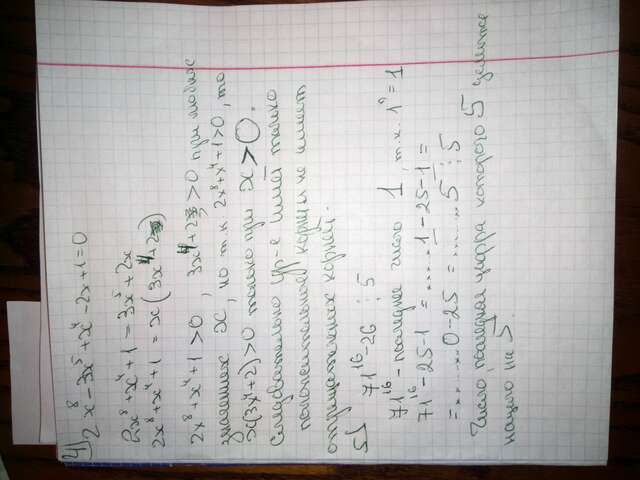 4) 2x⁸ - 3x⁵ + x⁴ - 2x + 1 = 0
2x⁸ + x⁴ + 1 = 3x⁵ + 2x
2x⁸ + x⁴ + 1 = x(3x⁴ + 2)
2x⁸ + x⁴ + 1 > 0, 3x⁴ + 2 > 0 при любых
значениях x, но т.к 2x⁸ + x⁴ + 1 > 0, то
x(3x⁴ + 2) > 0 только при x > 0.
Следовательно ур-е имеет только
положительные корни и не имеет
отрицательных корней.
5) 71¹⁶ - 26 ⋮ 5
71¹⁶ - последнее число 1, т.к. 1ⁿ = 1
71¹⁶ - 25 - 1 = ......1 - 25 - 1 =
= ......0 - 25 = ......5 ⋮ 5
Число, последняя цифра которого 5
нацело на 5.